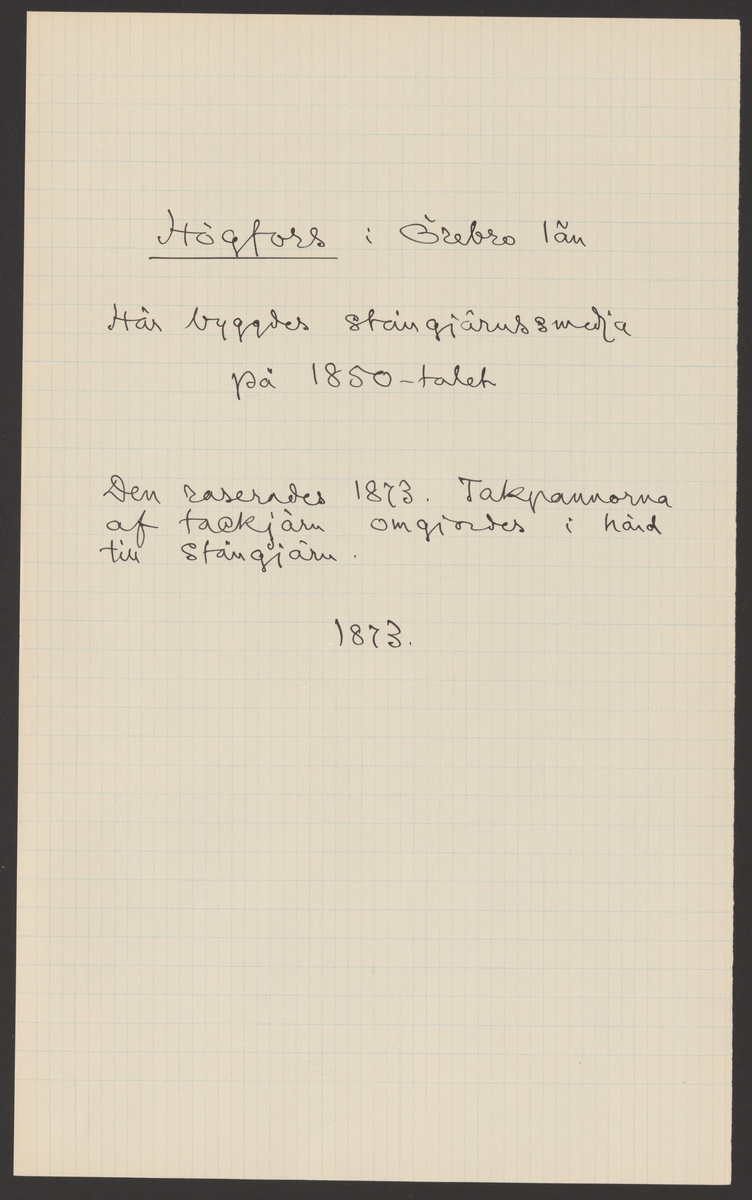 Högfors i Örebro län
Här byggdes stångjärnssmedja
på 1850-talet
Den raserades 1873. Takpannorna
af tackjärn omgjordes i härd
till Stångjärn.
1873.